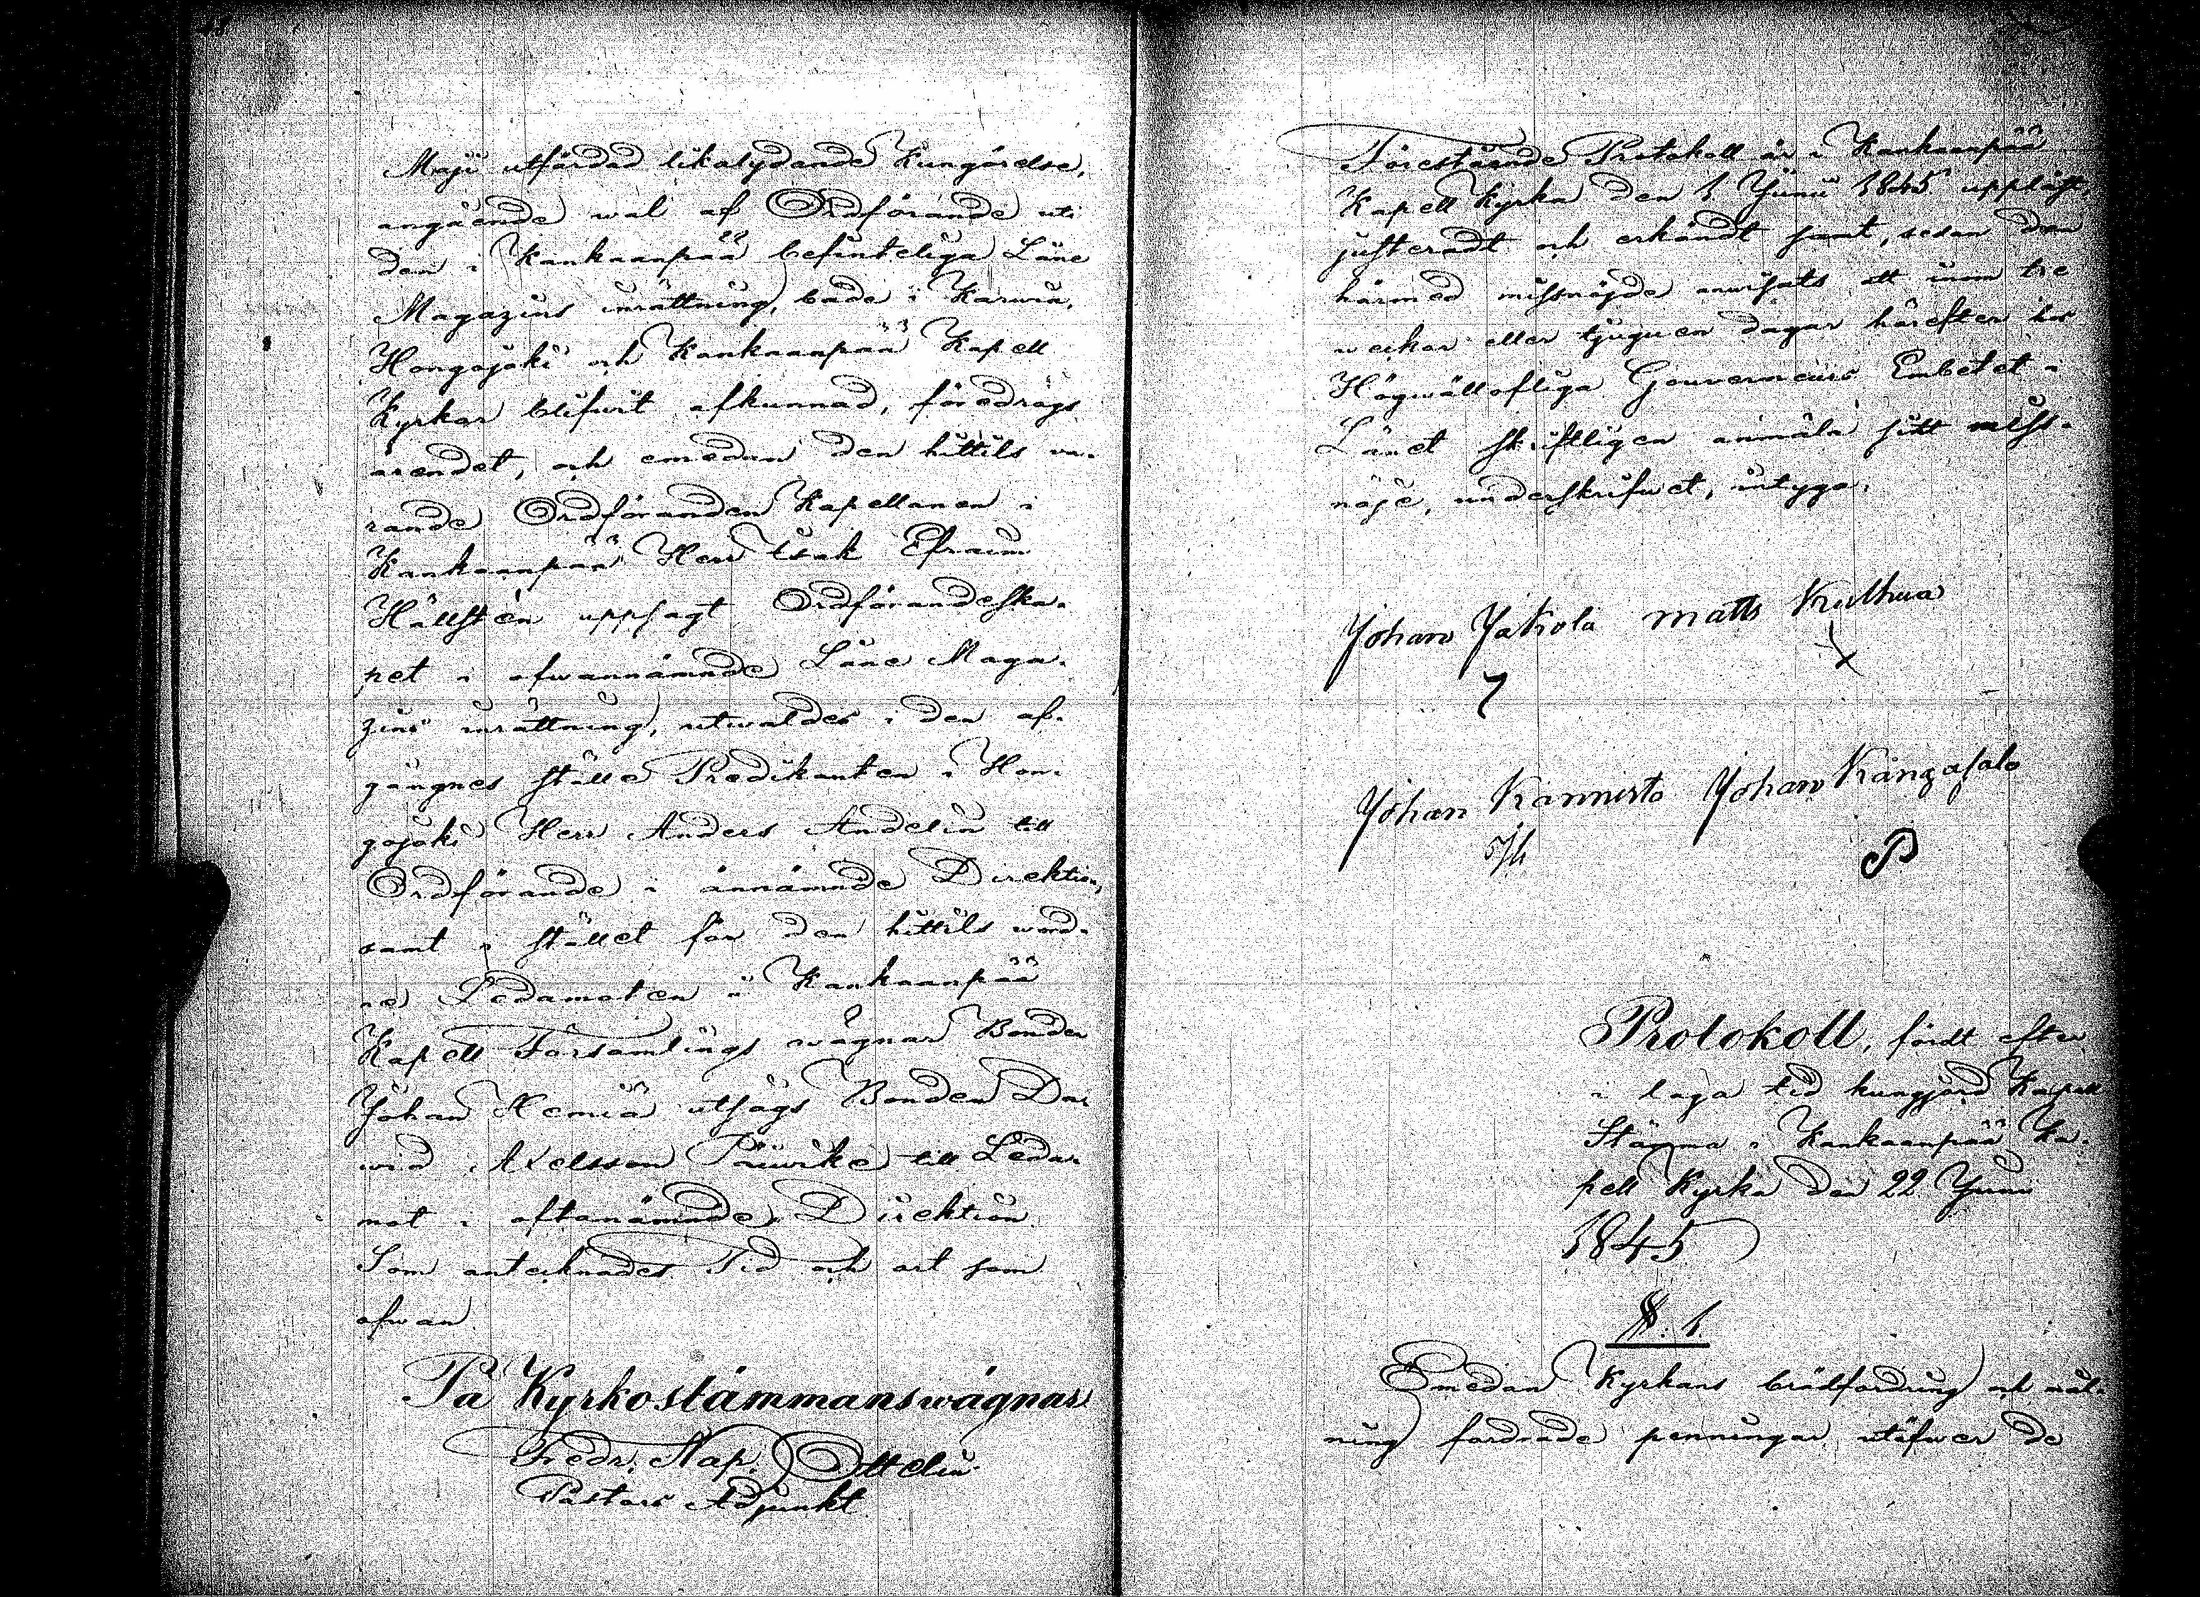 Maji utfärdad likalydande Kungörelse,
angående wal af Ordförande uti
den i Kankaanpää befinteliga Låne
Magazins inrättning, både i Karwia,
Hongojoki och Kankaanpää Kapell
Kyrkor blifwit afkunnad, föredrogs
ärendet, och emedan den hittils wa-
rande Ordföranden Kapellanen i
Kankaanpää Herr Isak Efraim
Hällstén uppsagt Ordförandeska-
pet i ofwannämnde Låne Maga-
zins inrättning, utwaldes i den af-
gångnes ställe Predikanten i Hon-
gojoki Herr Anders Andelin till
Ordförande i ännämnde Direktion,
samt i stället för den hittils
Ledamoten å Kankaanpää
Kapell Församlings wägnar Bonden
Johan Hemiä utsågs Bonden Da-
wid Axelsson till Leda-
mot i oftanämnde Direktion.
Som antecknades. Tid och ort som
ofwan
På Kyrkostämmans wägnar
Fredr. Nap. Ottelin
Pastors Adjunkt
Förestående Protokoll är i Kankaanpää
Kapell Kyrka den 1 Junii 1845 uppläst,
justeradt och erkändt samt, sedan den
härmed missnöjde anwisats att inom tre
weckor eller tjuguen dagar härefter hos
Högwällofliga Gouverneurs Embetet i
Länet skriftligen anmäla sitt miss-
nöje, underskrifwet, intyga.
Johan Jakola Matts Kulhua
Johan Kannisto Johan Kangasalo
Protokoll, fördt efter
i laga tid kungjord Kapell
Stämma i Kankaanpää Ka-
pell Kyrka den 22 Junii
1845
§. 1.
Emedan Kyrkans brädfordring och mål-
ning fordrade penningar utöfwer de